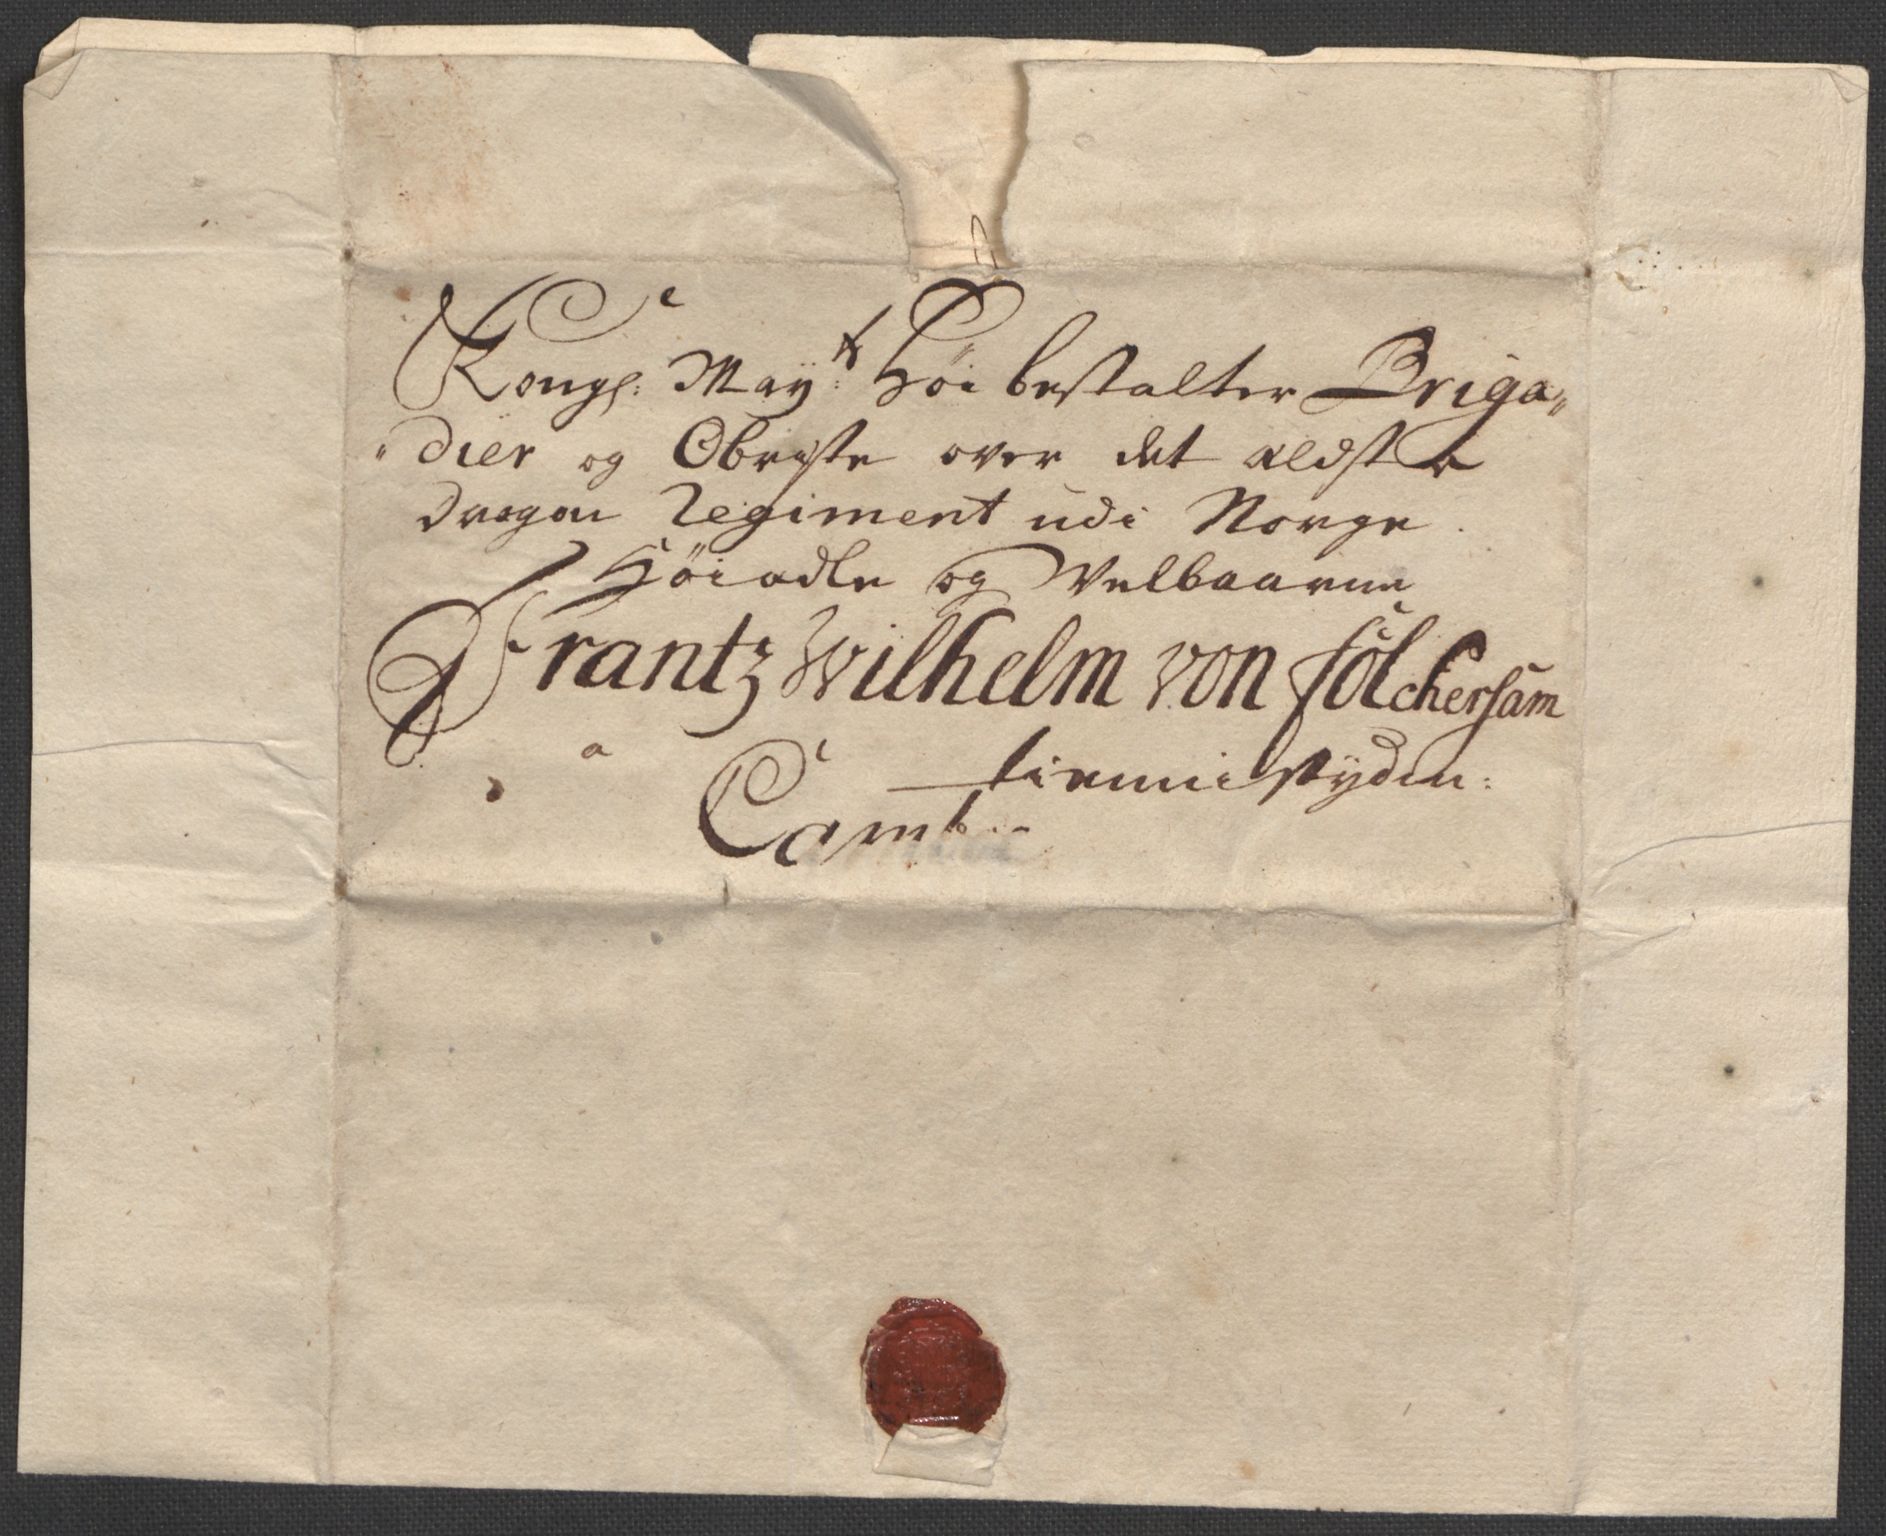 Kongl: May:ts Høi bestalter Briga„
„dier og Obriste over det eldste
Dragon Regiment udi Norge.
Høiædle og Velbaarne
Frantz Wilhelm von fölckersam
tienniestyden:
a